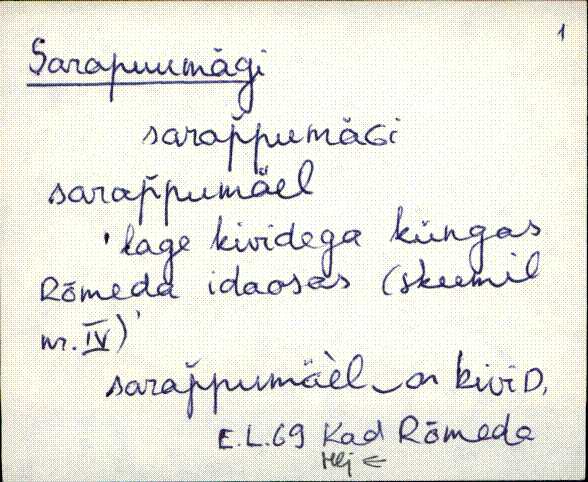 1
Sarapuumägi
sarap̆pumäGi
sarap̆pumäel
'lage kividega küngas
Rõmeda idaosas (skeemil
nr. IV)'
sarap̆pumäèl‿on kiviD,
E.L.69 Kad Rõmeda
Hlj ←